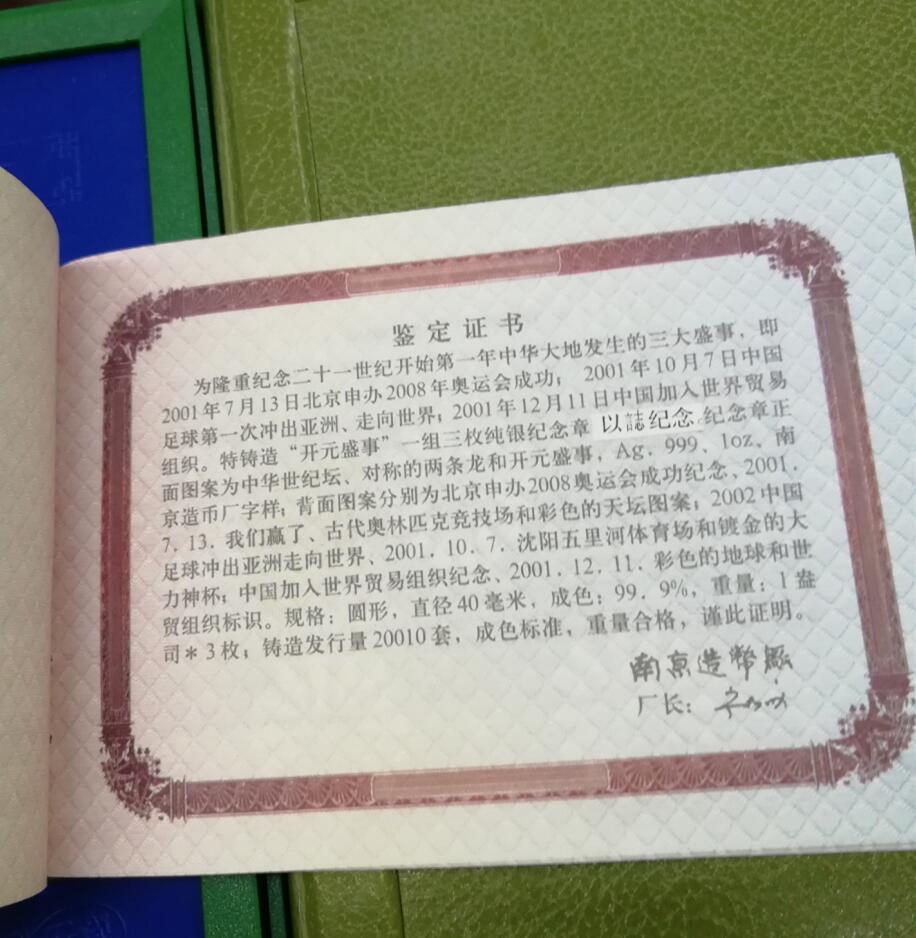 鉴定证书
为隆重纪念二十一世纪开始第一年中华大地发生的三大盛事，即
2001年7月13日北京申办2008年奥运会成功； 2001年10月7日中国
足球第一次冲出亚洲、走向世界；2001年12月11日中国加入世界贸易
组织。特铸造“开元盛事”一组三枚纯银纪念章 以誌纪念 纪念章正
面图案为中华世纪坛、对称的两条龙和开元盛事，Ag．999、1oz、南
京造币厂字样；背面图案分别为北京申办2008奥运会成功纪念、2001．
7．13．我们赢了、古代奥林匹克竞技场和彩色的天坛图案；2002中国
足球冲出亚洲走向世界、2001．10．7．沈阳五里河体育场和镀金的大
力神杯；中国加入世界贸易组织纪念、2001．12．11．彩色的地球和世
贸组织标识。规格：圆形，直径40毫米，成色：99．9%，重量：1盎
司＊3枚；铸造发行量20010套，成色标准，重量合格，谨此证明。
南京造幣厰
厂长：